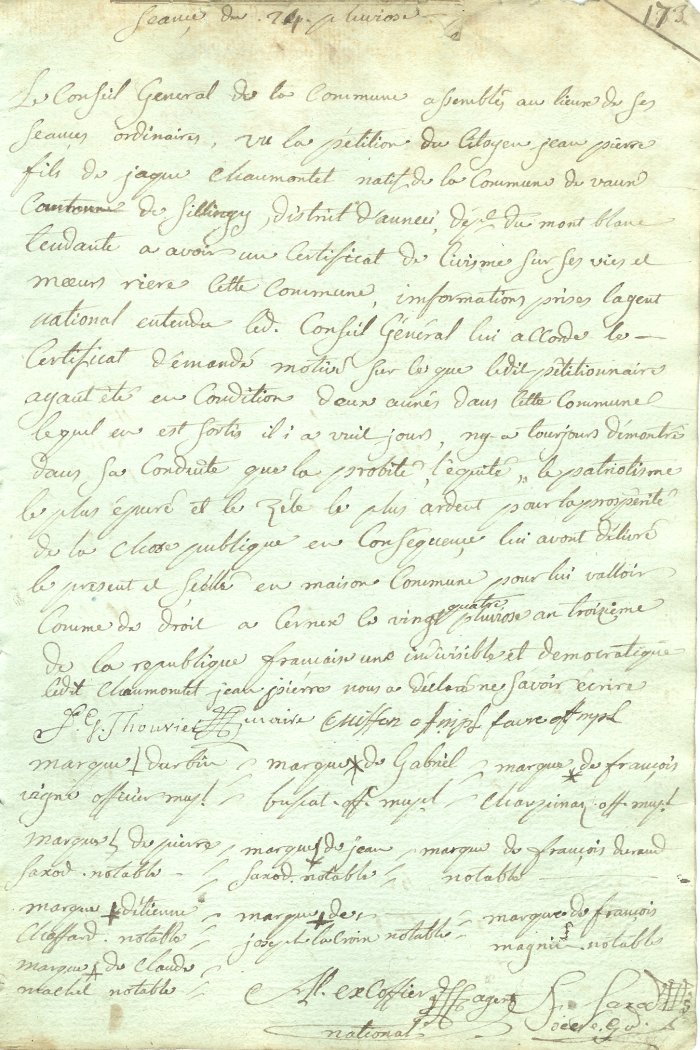 173
Seance du 24 pluviose
Le Conseil General de la Commune assemblés au lieux de ses
seances ordinaires, vu la pétition du Citoyen jean pierre
fils de jaque Chaumontet natif de la Commune de vaux
Commune de Sillingy, district d'anneci, dépt. du mont blanc
tendante a avoir un Certificat de Civisme sur ses vies et
mœurs riere cette Commune, imformations prises lagent
national entendu led. Conseil Général lui accorde le
Certificat démandé motivé sur ce que ledit pétitionnaire
ayant été en Condition deux annés dans cette Commune
lequel en est sortis il i a vuit jours, ny a tourjours démontré
dans sa Conduite que la probité, l'equité, le patriotisme
le plus épuré et le zéle le plus ardent pour la prospérité
de la Chose publique en Conséquence, lui avont délivré
le present et séellé en maison Commune pour lui valloir
Comme de droit a Cernex le vingt quatre pluviose an troizieme
de la republique francaise une indivisible et democratique
ledit Chaumontet jean pierre nous a déclaré ne savoir écrire
Thouvier maire off. mpl favre off mpl
marque d'urbin marque de Gabriel marque de françois
vigne officier mupl. buscat off. mupl Charpinaz off. mupl
marque de pierre marque de jean marque de françois durand
Saxod notable Saxod notable notable
marque d'étienne marque de marque de françois
Choffard notable joseph lacroix notable magnin notable
marque de Claude
machet notable
Excoffier agent Saxod
national